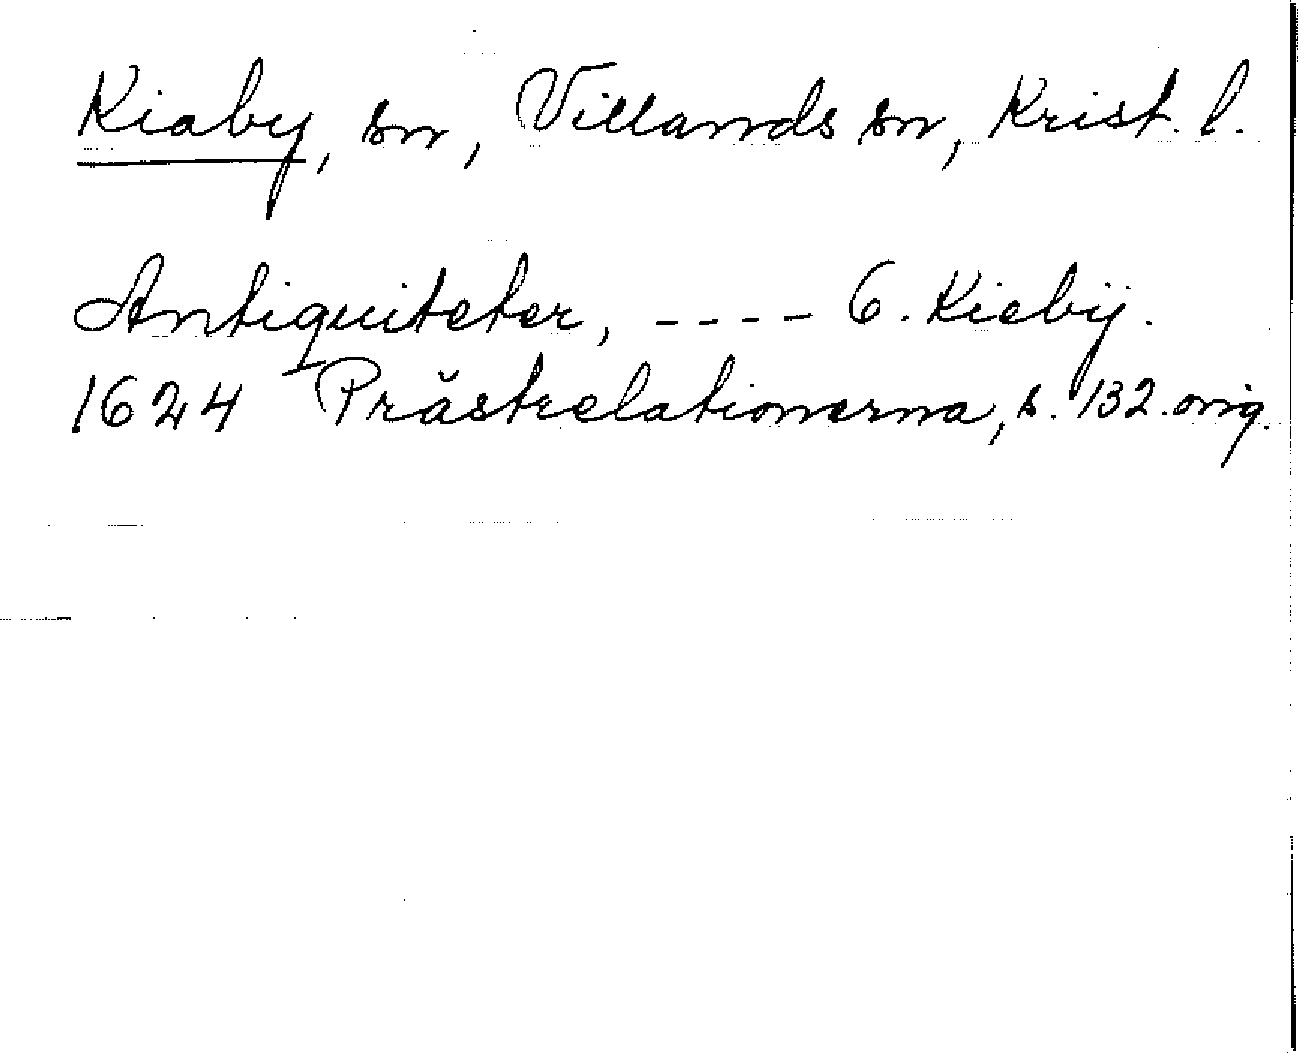 Kiaby, sn, Villands sn, Krist. l.
Antiquiteter, ---- 6. Kiebÿ.
1624 Prästrelationerna, s. 132. orig.